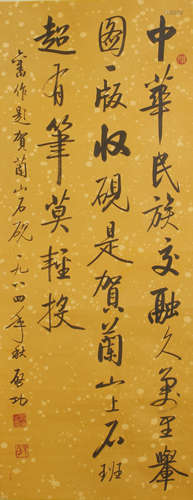 中華民族交融久萬里輿
圖一版收硯是賀蘭山上石班
超有筆莫輕投
舊作題賀蘭山石硯一九八四年秋啟功